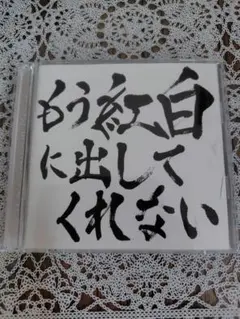 もう紅白
に出して
くれない